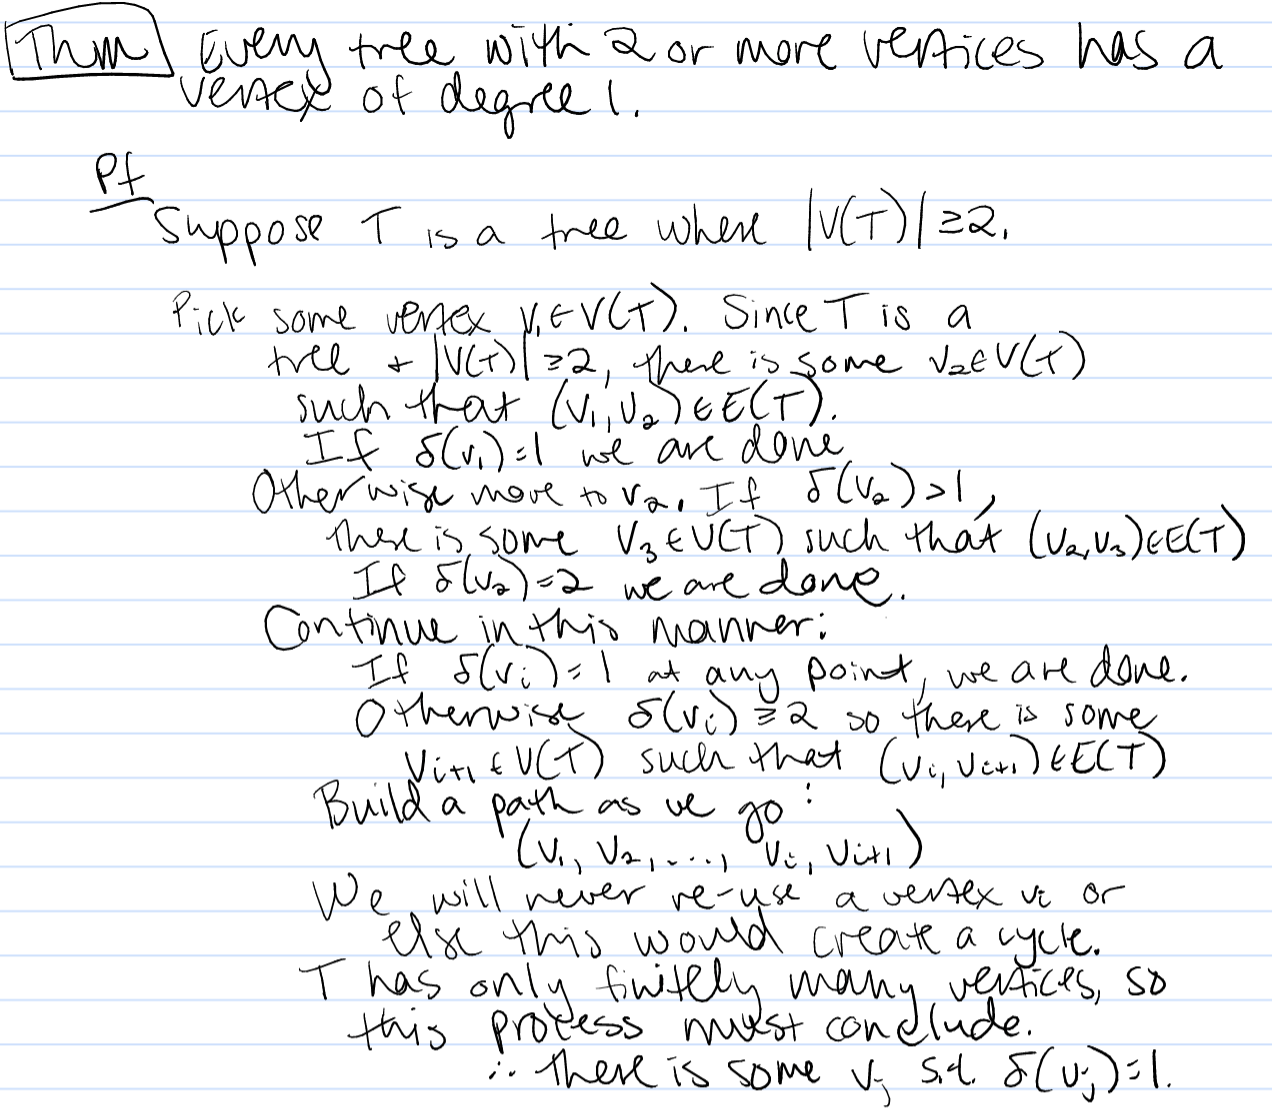 Thm Every tree with 2 or more vertices has a
vertex of degree 1.
Pf
Suppose T is a tree where |V(T)| ≥ 2.
Pick some vertex v₁ ∈ V(T). Since T is a
tree + |V(T)| ≥ 2, there is some v₂ ∈ V(T)
such that (v₁, v₂) ∈ E(T).
If δ(v₁) = 1 we are done
Otherwise move to v₂. If δ(v₂) > 1,
there is some v₃ ∈ V(T) such that (v₂, v₃) ∈ E(T)
If δ(v₂) = 2 we are done.
Continue in this manner:
If δ(vᵢ) = 1 at any point, we are done.
Otherwise δ(vᵢ) ≥ 2 so there is some
vᵢ₊₁ ∈ V(T) such that (vᵢ, vᵢ₊₁) ∈ E(T)
Build a path as we go:
(v₁, v₂, ..., vᵢ, vᵢ₊₁)
We will never re-use a vertex vᵢ or
else this would create a cycle.
T has only finitely many vertices, so
this process must conclude.
∴ there is some vⱼ s.t. δ(vⱼ) = 1.